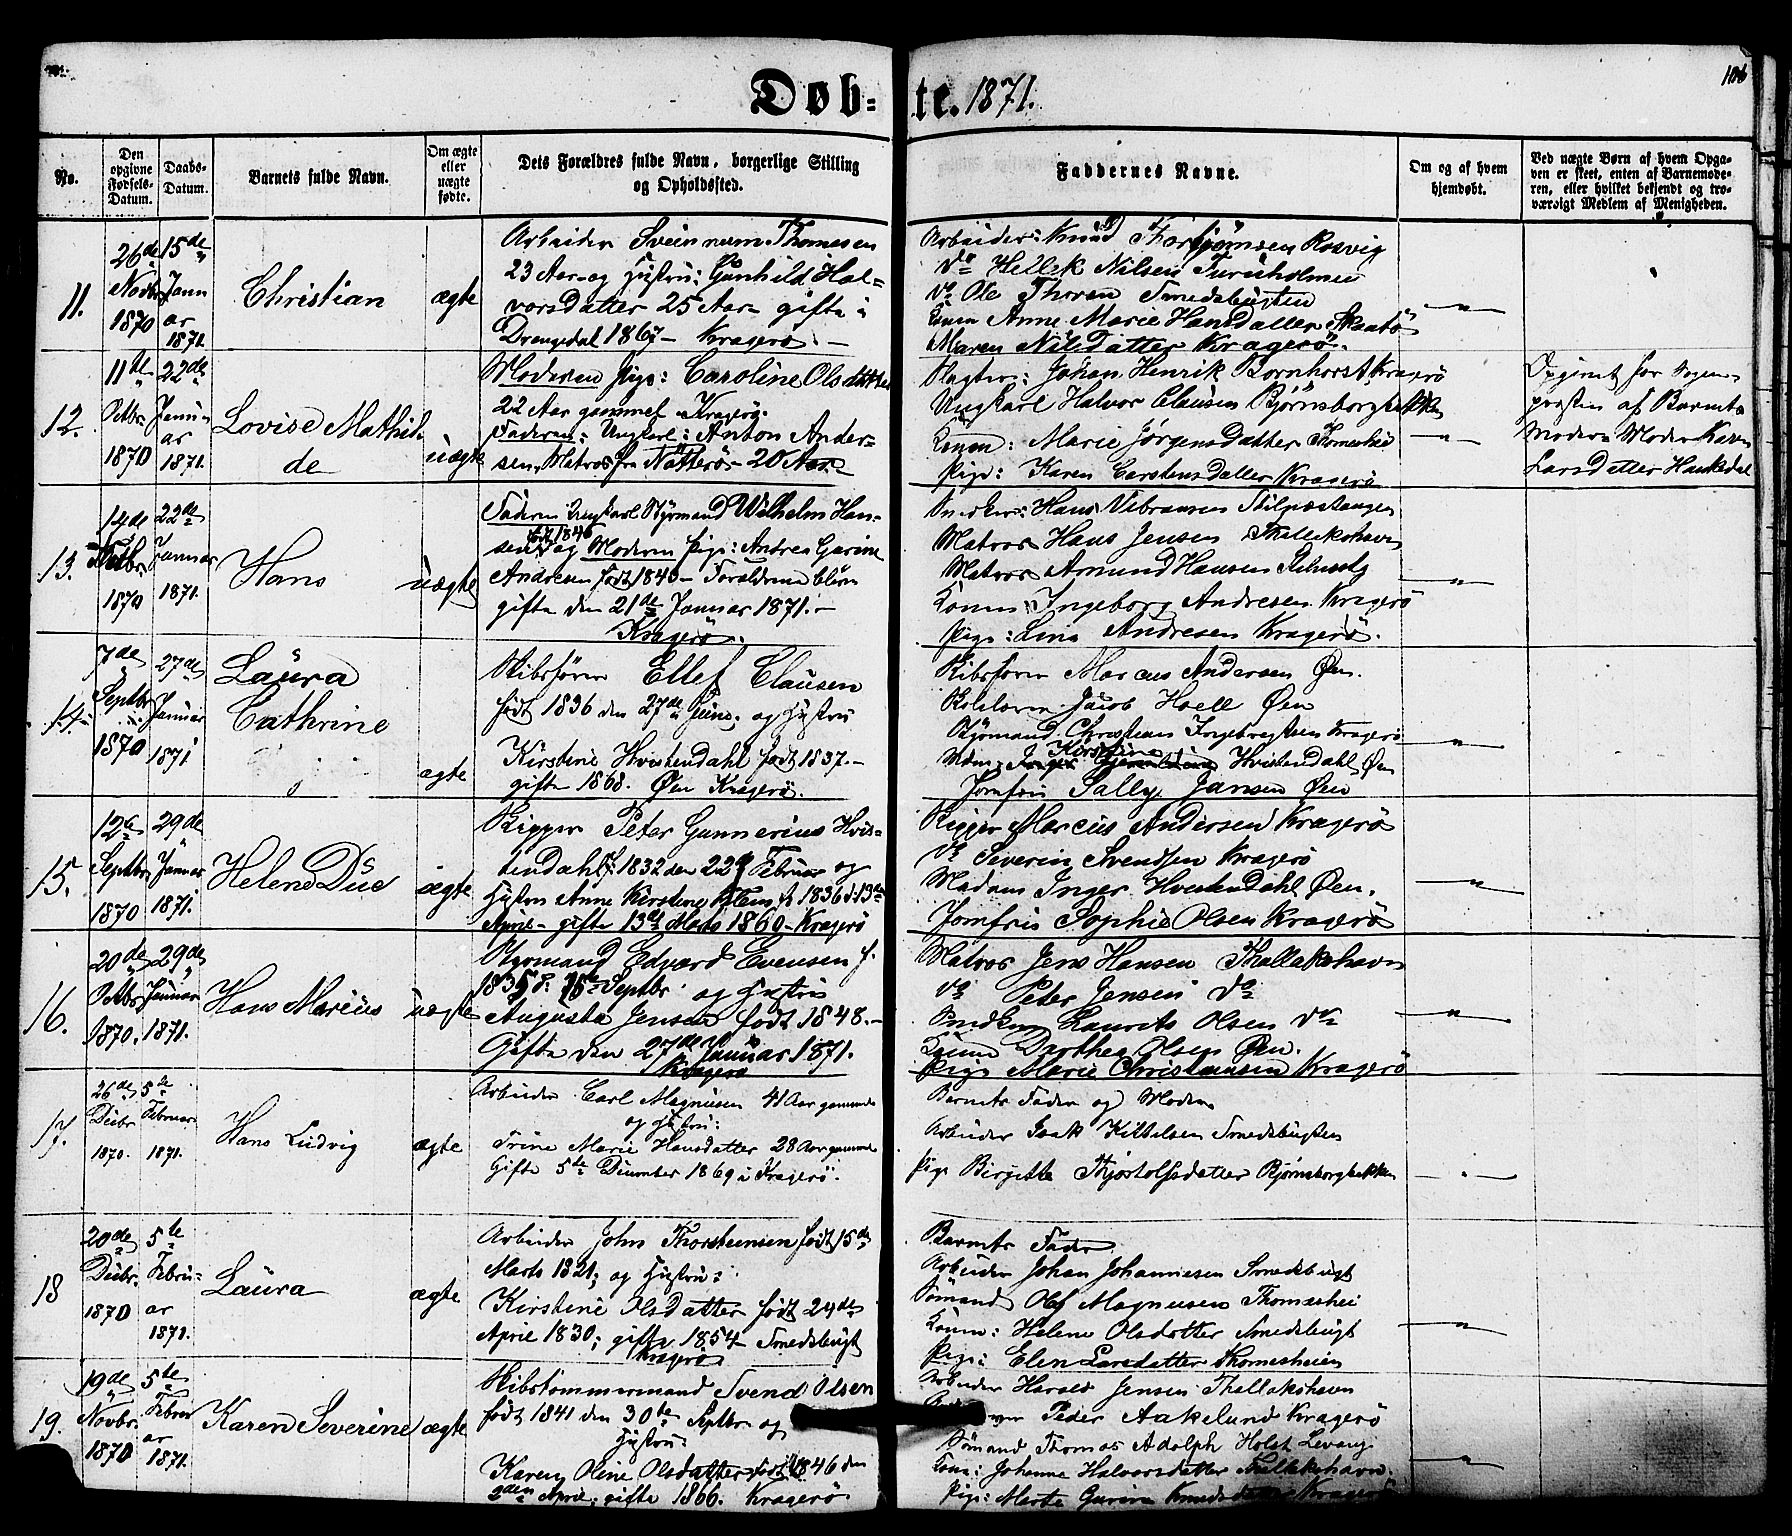 Døb-
te. 1871.
106
No.
Den opgivne Fødsels-Datum.
Daabs-Datum.
Barnets fulde Navn.
Om ægte eller uægte fødte.
Dets Forældres fulde Navn, borgerlige Stilling og Opholdssted.
Faddernes Navne.
Om og af hvem hjemdøbt.
Ved uægte Børn af hvem Opga-
ven er skeet, enten af Barnemode-
ren, eller hvilket bekjendt og tro-
værdigt Medlem af Menigheden.
11.
26de Novbr 1870
15de Januar 1871.
Christian
ægte
Arbeider Sveinnum Thomesen
23 Aar og Hustru: Gunhild Hal-
vorsdatter 25 Aar gifte i
Drangedal 1867 - Kragerø -
Arbeider: Knud Thorbjørnsen Rosvig
Do Hellek Nilsen Furuholmen
Do Ole Thoresen Smedsbugten
Konen Anne Marie Hansdatter Skaatø
Maren Nilsdatter Kragerø.
"
12.
11te Octbr 1870
22de Januar 1871.
Lovise Mathil-
de
uægte
Moderen Pige: Caroline Olsdatter
22 Aar gammel Kragerø.
Faderen: Ungkarl: Anton Ander-
sen, Matros fra Nøtterø - 20 Aar
Slagter: Johan Henrik Bornhorst, Kragerø
Ungkarl Halvor Clausen Bjørnsborgbakken
Konen: Marie Jørgensdatter Thomeshei
Pige: Karen Carstensdatter Kragerø
"
Opgivet for Sogne-
presten af Barnets
Moders Moder Karen
Larsdatter
13.
14de Octbr. 1870
22de Januar 1871.
Hans
uægte
Faderen Ungkarl Styrmand Wilhelm Han-
sen født 1846 og Moderen Pige: Andrea Gurine
Andresen født 1840 - Forældrene bleve
gifte den 21de Januar 1871. -
Kragerø.
Snedker: Hans Vibransen Stilpaastangen
Matros Hans Jensen Thallakshavn
Matros Amund Hansen
Konen: Ingeborg Andresen Kragerø
Pige: Lina Andresen Kragerø.
"
14.
7de Septbr 1870
27de Januar 1871
Laura
Cathrine
ægte
Skibsfører Ellef Clausen
født 1836 den 27de Juni, og Hustru
Kirstine Hvistendahl født 1837. -
gifte 1868. Øen Kragerø.
Skibsfører Marcus Andersen Øen.
Jacob Hoell Øen
Styrmand Christian Ingebregtsen Kragerø
Mdm: Kirstine Hvistendahl Øen
Jomfru Sally Jansen Øen
"
15.
12te Septbr 1870
29de Januar 1871.
Helene Due
ægte
Rigger Peter Gunnerius Hvis-
tendahl f. 1832 den 22de Februar og
Hustru Anne Kirstine Klem, f. 1836 d. 13de
April - gifte 13de Marts 1860 - Kragerø
Rigger Marcus Andersen Kragerø
Do Severin Svendsen Kragerø
Madam Inger Hvistendahl Øen.
Jomfru Sophie Olsen Kragerø
"
16.
20de Octbr 1870.
29de Januar 1871.
Hans Marius
uægte
Styrmand Edvard Evensen f.
1835 d: 15de Septbr og Hustru
Augusta Jensen født 1848. -
Gifte den 27de Januar 1871.
Kragerø
Matros Jens Hansen Thallakshavn
Do Peter Jensen Do
Snedker Laurits Olsen Do
Konen Dorthea Olsen Øen.
Pige Marie Christiansen Kragerø
"
17.
26de Decbr 1870.
5te Februar 1871.
Hans Ludvig
ægte
Arbeider Carl Magnusen 41 Aar gammel
og Hustru:
Trine Marie Hansdatter 28 Aar gammel
Gifte 5te December 1869 i Kragerø.
Barnets Fader og Moder
Arbeider Isak Kittilsen Smedsbugten
Pige Birgitte Kjøstolfsdatter Bjørnsborgbakken
"
18
20de Decbr. 1870
5te Febru-
ar 1871.
Laura
ægte
Arbeider John Thorsteinsen født 15de
Marts 1821; og Hustru:
Kirstine Olsdatter født 24de
April 1830; gifte 1854 - Smedsbugt
Kragerø
Barnets Fader
Arbeider Johan Johannesen Smedsbugt
Sømand Olaf Magnusen Thomeshei
Konen: Helene Olsdatter Smedsbugt
Pige: Elen Larsdatter Thomesheien
"
19.
19de Novbr. 1870
5te Febru
ar 1871.
Karen Severine
ægte
Skibstømmermand Svend Olsen
født 1841 den 30te Septbr og
Hustru:
Karen Oline Olsdatter født 1846 den
2den April; gifte 1866. Kragerø
Arbeider Harald Jensen Thallakshavn
Peder Aakelund Kragerø
Sømand Thomas Adolph Holst Levang
Kone: Johanne Halvorsdatter Thallakshavn.
Pige: Marte Gurine Knudsdatter Kragerø
"